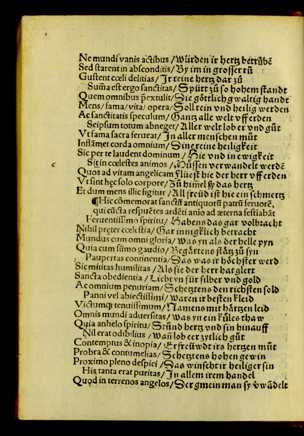 Ne mundi vanis actibus / Würden ir hertz betrübẽ
Sed starent in absconditis / By im in grosser rů
Gustent cœli delitias / Ir reine hertz dar zů
Suma est ergo sanctitas / Spürt zů so hohem standt
Quem omnibus prætulit / Sie götlich gwaltig handt
Mens / fama / vita / opera / Soll rein vnd heilig werden
At sanctitatis speculum / Gantz alle welt vff erden
Seipsum totum abneget / Aller welt lob er vnd gůt
Vt fama sacra ferveat / In aller menschen můt
Inflamet corda omnium / Sin reine heiligkeit
Sic per te laudent dominum / Hie vnd in ewigkeit
Sit in cœlestes animos / Müssen verwandelt werdẽ
Quos ad vitam angelicam / Fliesst hie der herr vff erden
Vt sint hęc solo corpore / Zů himel ßy das hertz
Et dum mens illic figitur / All freüd ist hie ein schmertz
¶ Hic cōmemorat sanctū antiquorū patrū feruorẽ,
qui cūcta respuētes ardēti anīo ad æterna festīabāt
Feruentissimo spiritu / Habens das gar volbracht
Nihil præter cœlestia / Gar inniglich betracht
Mundus cum omni gloria / Was yn als der helle pyn
Quia cum summo gaudio / Begärtens stätz zů syn
Paupertas continentia / Das was ir höchster werd
Sic mititas humilitas / Als sie der herr hat glert
Sancta obedientia / Liebt yn für silber vnd gold
Ac omnium penuriam / Schetztens den richsten sold
Panni vel abiectissimi / Waren ir besten kleid
Victusq; tenuissimum / Namens mit härtzen leid
Omnis mundi aduersitas / Was yn ein küles thaw
Quia anhelo spiritu / Stůnd hertz vnd sin hinauff
Nil erat odibilius / Wañ lob eer zytlich gůt
Contemptus & inopia / Erfreüwdt irs hertzen můt
Probra & contumelias / Schetztens hohen gewin
Proximo pleno despici / Das wünscht ir heiliger sin
His tanta erat puritas / In allem irem handel
Quod in terrenos angelos / Der gmein man sy v̈wädelt